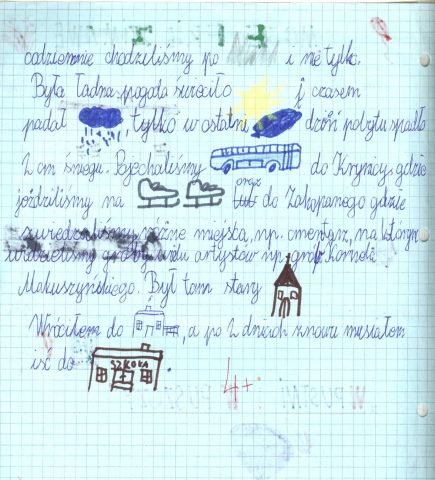 codziennie chodziliśmy po i nie tylko.
Była ładna pogoda świeciło i czasem
padał , tylko w ostatni dzień pobytu spadło
2 cm śniegu. Pojechaliśmy do Krynicy, gdzie
jeździliśmy na oraz do Zakopanego gdzie
zwiedzaliśmy różne miejsca, np. cmentarz, na którym
widzieliśmy groby wielu artystów np. grób Kornela
Makuszyńskiego. Był tam stary
Wróciłem do , a po 2 dniach znowu musiałem
iść do SZKOŁA
4+